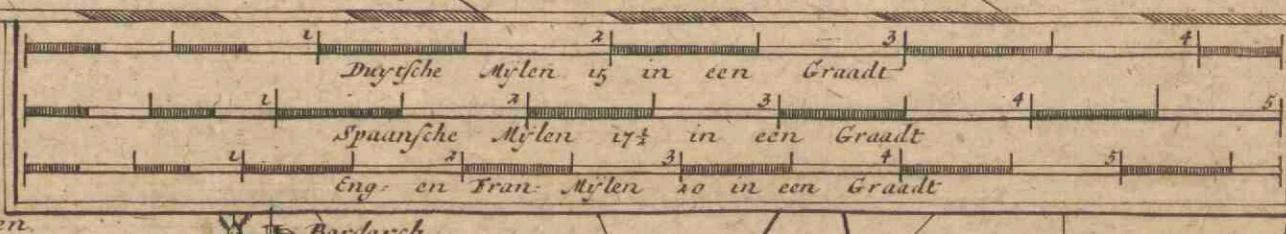 1 2 3 4
Duytsche Mÿlen 15 in een Graadt
1 2 3 4 5
Spaansche Mÿlen 17½ in een Graadt
1 2 3 4 5
Eng: en Fran: Mÿlen 20 in een Graadt
en